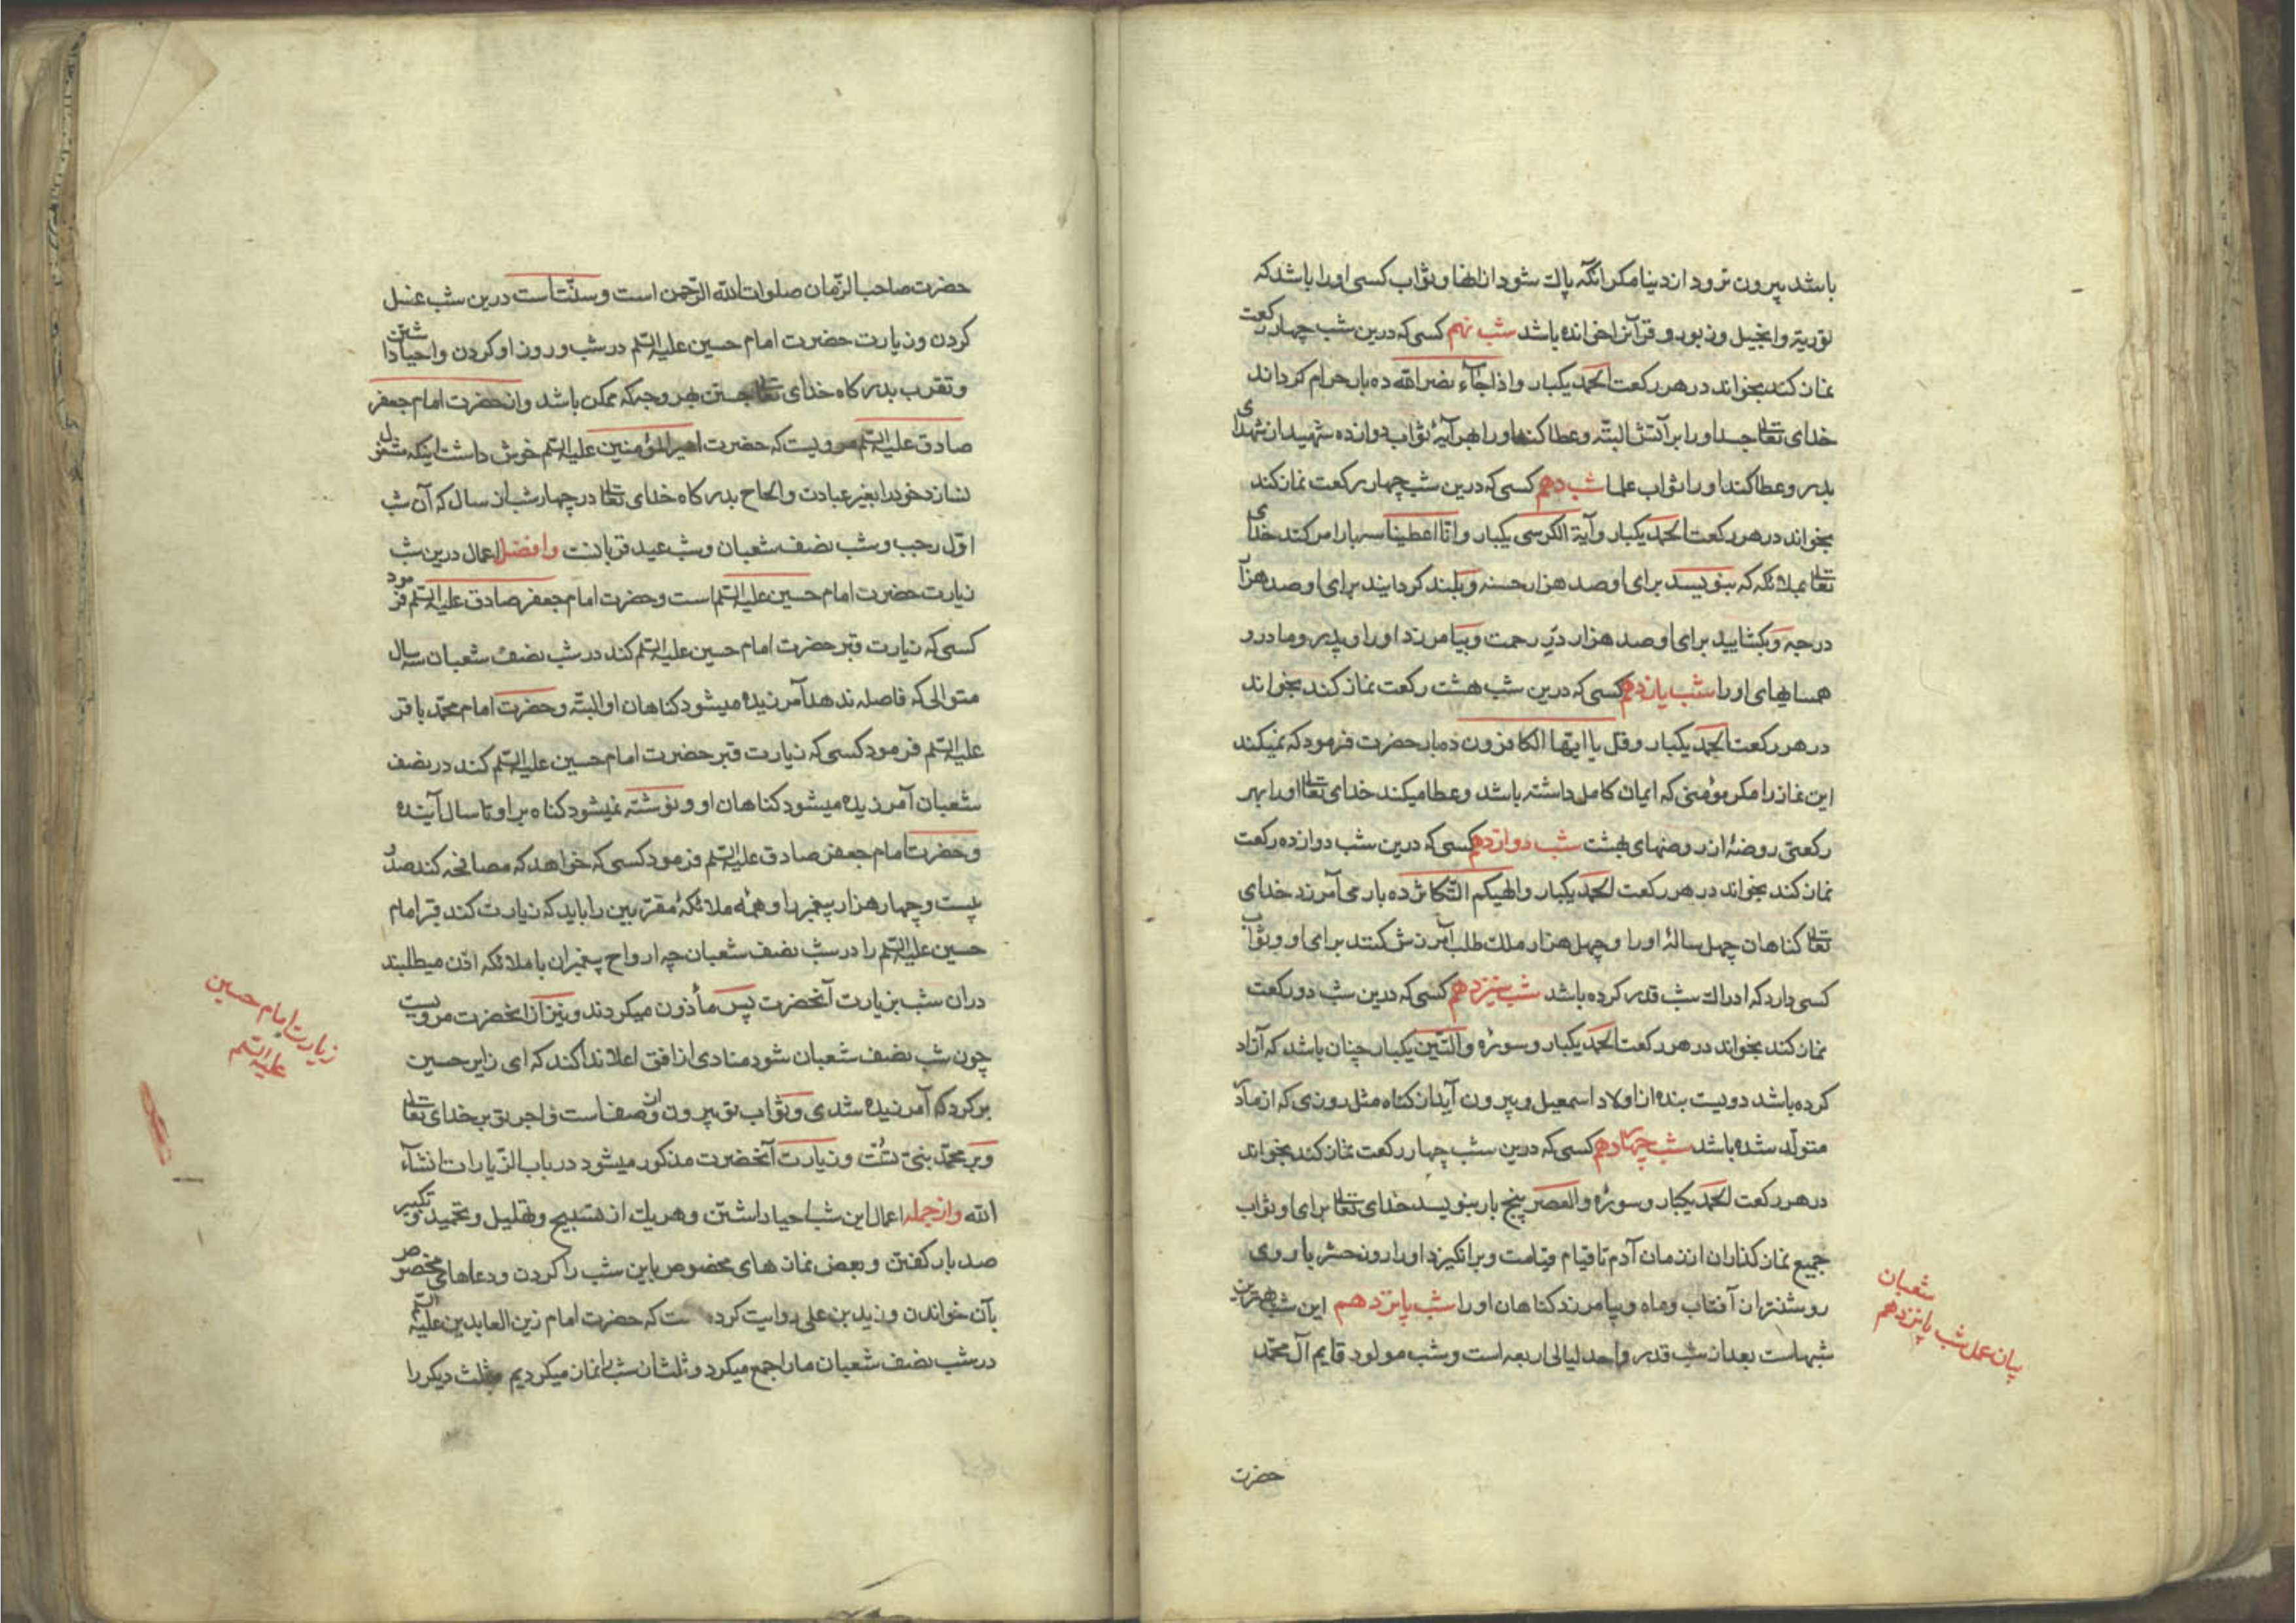 باشد بیرون نرود از دنیا مکر انکه پاك شود از انها و ثواب کسی او را باشد که
توریة و انجیل و زبور و فرقانرا خوانده باشد شب نهم کسی که درین شب چهار رکعت
نماز کند بخواند در هر رکعت الحمد یکبار و اذا جاء نصر الله ده بار حرام کرداند
خدای تعالی جسد او را بر آتش البته و عطا کند او را بهر آیۀ ثواب دوازده شهید از شهدای
بدر و عطا کند او را ثواب علما شب دهم کسی که درین شب چهار رکعت نماز کند
بخواند در هر رکعت الحمد یکبار و آیة الکرسی یکبار و انا اعطینا سه بار امر کند خدای
تعالی بملائکه که بنویسد برای او صد هزار حسنه و بلند کردانند برای او صد هزار
درجه و بکشایید برای او صد هزار در رحمت و بیامرزد او را و پدر و مادر و
همسایهای او را شب یازدهم کسی که درین شب هشت رکعت نماز کند بخواند
در هر رکعت الحمد یکبار و قل یا ایها الکافرون ده بار حضرت فرمود که نمیکند
این نماز را مکر مؤمنی که ایمان کامل داشته باشد و عطا میکند خدای تعالی او را بهر
رکعتی روضۀ از روضهای بهشت شب دوازدهم کسی که درین شب دوازده رکعت
نماز کند بخواند در هر رکعت الحمد یکبار و الهیکم التکاثر ده بار می آمرزد خدای
تعالی کناهان چهل سالۀ او را و چهل هزار ملك طلب آمرزش کنند برای او و ثواب
کسی دارد که ادراك شب قدر کرده باشد شب سیزدهم کسی که درین شب دو رکعت
نماز کند بخواند در هر رکعت الحمد یکبار و سورۀ و التین یکبار چنان باشد که آزاد
کرده باشد دویست بنده از اولاد اسمعیل و بیرون آید از کناه مثل روزی که از مادر
متولد شده باشد شب چهاردهم کسی که درین شب چهار رکعت نماز کند بخواند
در هر رکعت الحمد یکبار و سورۀ و العصر پنج بار بنویسد خدای تعالی برای او ثواب
جمیع نماز کذاران از زمان آدم تا قیام قیامت و برانکیزد او را روز حشر با روی
روشنتر از آفتاب و ماه و بیامرزد کناهان او را شب پانزدهم این شب بهترین
شبهاست بعد از شب قدر و احد لیالی اربعه است و شب مولود قایم آل محمد
بیان عمل شب پانزدهم
شعبان
حضرت
حضرت صاحب الزمان صلوات الله الرحمن است و سنت است درین شب غسل
کردن و زیارت حضرت امام حسین علیه السلم در شب و روز او کردن و احیا داشتن
و تقرب بدر کاه خدای تعالی جستن بهر وجه که ممکن باشد و از حضرت امام جعفر
صادق علیه السلم مرویست که حضرت امیر المؤمنین علیه السلم خوش داشت اینکه مشغول
نسازد خود را بغیر عبادت و الحاح بدر کاه خدای تعالی در چهار شب از سال که آن شب
اول رجب و شب نصف شعبان و شب عید قربانست و افضل اعمال درین شب
زیارت حضرت امام حسین علیه السلم است و حضرت امام جعفر صادق علیه السلم فرمود
کسی که زیارت قبر حضرت امام حسین علیه السلم کند در شب نصف شعبان سه سال
متوالی که فاصله ندهد آمرزیده میشود کناهان او البته و حضرت امام محمد باقر
علیه السلم فرمود کسی که زیارت قبر حضرت امام حسین علیه السلم کند در نصف
شعبان آمرزیده میشود کناهان او و نوشته نمیشود کناه بر او تا سال آینده
و حضرت امام جعفر صادق علیه السلم فرمود کسی که خواهد که مصافحه کند صد و
بیست و چهار هزار پیغمبر را و همه ملائکۀ مقربین را باید که زیارت کند قبر امام
حسین علیه السلم را در شب نصف شعبان چه ارواح پیغمبران با ملائکه اذن میطلبند
در آن شب بزیارت آنحضرت پس مأذون میکردند و نیز از انحضرت مرویست
چون شب نصف شعبان شود منادی از افق اعلا ندا کند که ای زایر حسین
بر کرد که آمرزیده شدی و ثواب تو بیرون از وصفاست و اجر تو بر خدای تعالی
و بر محمد بنی تست و زیارت آنحضرت مذکور میشود در باب الزیارات انشاء
الله و از جمله اعمال این شب احیا داشتن و هر یك از تسبیح و تهلیل و تحمید و تکبیر
صد بار کفتن و بعض نماز های مخصوص باین شب را کردن و دعاهای مختص
بآن خواندن و زید بن علی روایت کرده ست که حضرت امام زین العابدین علیه السلم
در شب نصف شعبان ما را جمع میکرد و ثلثان شب را نماز میکردیم و ثلث دیکر را
زیارت امام حسین
علیه السلم